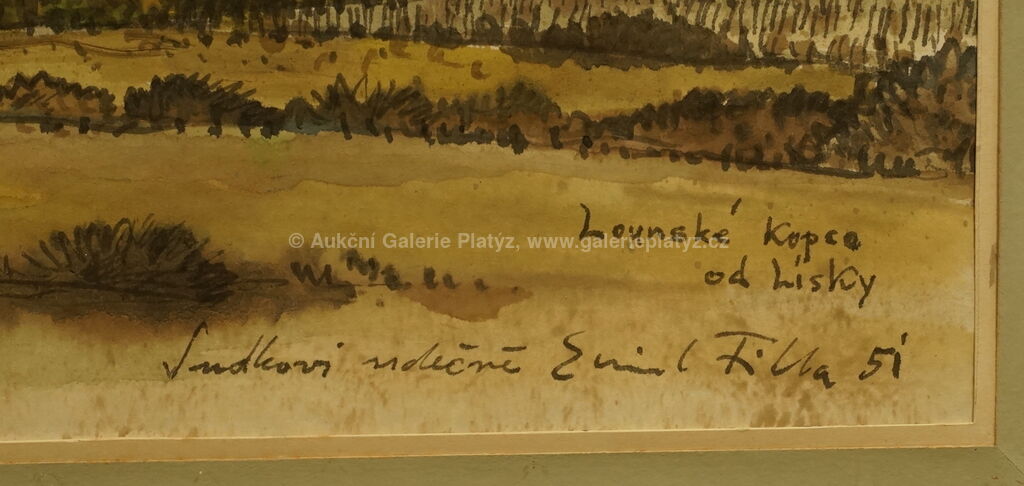 Lounské kopce
© Aukční Galerie Platýz, www.galerieplatyz.cz
od Lísky
Sudkovi vděčně Emil Filla 51